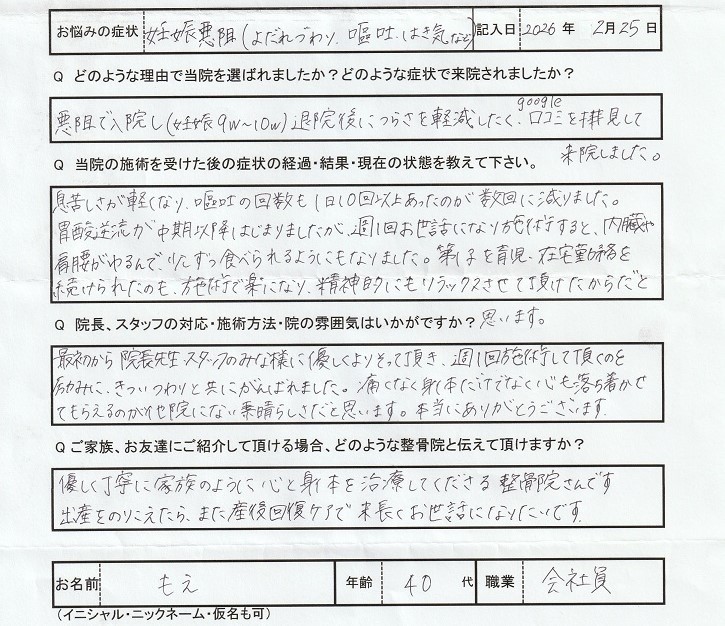 お悩みの症状 妊娠悪阻(よだれづわり、嘔吐、はき気など) 記入日 2026年 2月25日
Q どのような理由で当院を選ばれましたか？どのような症状で来院されましたか？
悪阻で入院し(妊娠9w～10w)退院後につらさを軽減したく、google口コミを拝見して
来院しました。
Q 当院の施術を受けた後の症状の経過・結果・現在の状態を教えて下さい。
息苦しさが軽くなり、嘔吐の回数も1日10回以上あったのが数回に減りました。
胃酸逆流が中期以降はじまりましたが、週1回お世話になり施術すると、内臓や
肩腰がゆるんで、少しずつ食べられるようにもなりました。第1子を育児、在宅勤務を
続けられたのも、施術で楽になり、精神的にもリラックスさせて頂けたからだと
思います。
Q 院長、スタッフの対応・施術方法・院の雰囲気はいかがですか？
最初から院長先生・スタッフのみな様に優しくよりそって頂き、週1回施術して頂くのを
励みに、きついつわりと共にがんばれました。痛くなく身体だけでなく心も落ち着かせ
てもらえるのが他院にない素晴らしさだと思います。本当にありがとうございます。
Q ご家族、お友達にご紹介して頂ける場合、どのような整骨院と伝えて頂けますか？
優しく丁寧に家族のように心と身体を治療してくださる整骨院さんです
出産をのりこえたら、また産後回復ケアで末長くお世話になりたいです。
お名前 もえ 年齢 40代 職業 会社員
(イニシャル・ニックネーム・仮名も可)